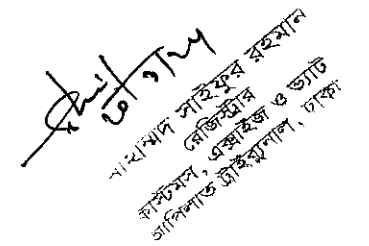 মোহাম্মদ সাইফুর রহমান
রেজিস্ট্রার
কাস্টমস, এক্সাইজ ও ভ্যাট
আপিলাত ট্রাইব্যুনাল, ঢাকা